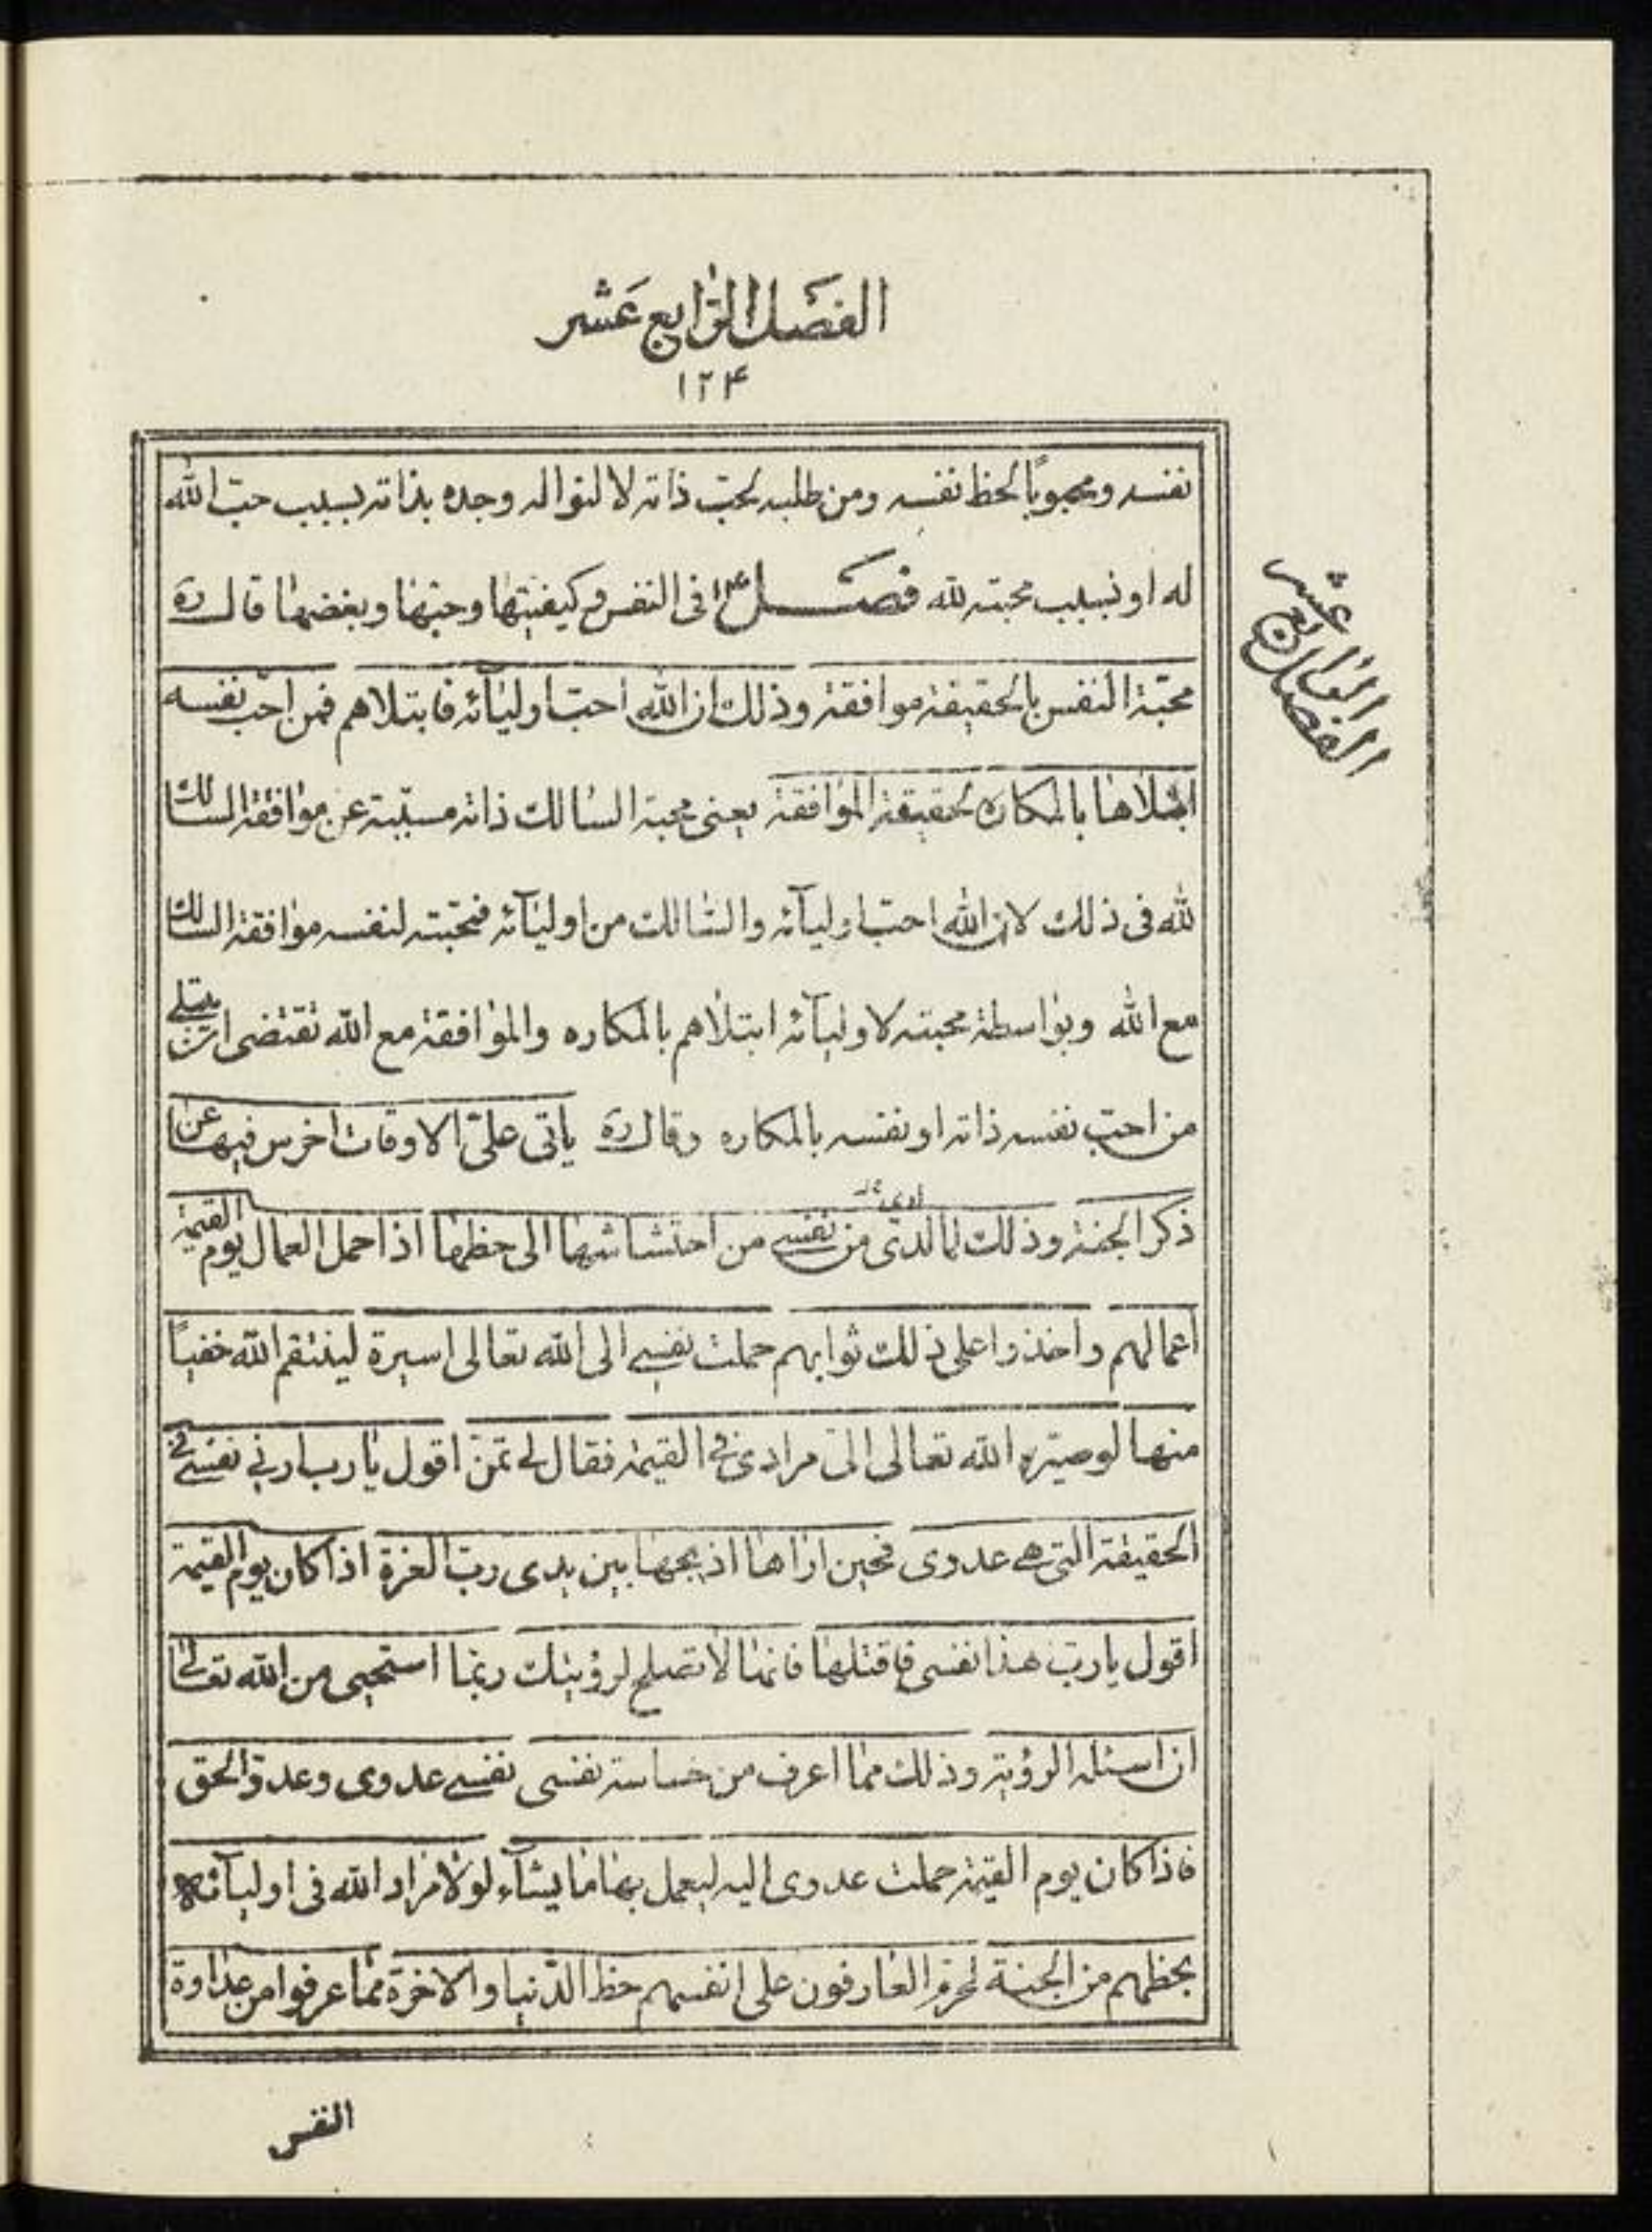 الفصل الرابع عشر
۱۲۴
نفسه ومحبوبًا لحظ نفسه ومن طلبه لحبّ ذاته لا لنواله وجده بذاته بسبب حبّ الله
له او بسبب محبته لله فصل ۱۴ فى النفس وكيفيتها وحبّها وبغضها قال ره
محبّة النفس بالحقيقة موافقة وذلك ان الله احبّ اوليآئه فابتلاهم فمن احبّ نفسه
ابتلاها بالمكاره لحقيقة الموافقة يعنى محبة السالك ذاته مسبّبة عن موافقة السالك
لله فى ذلك لان الله احبّ اوليآئه والسّالك من اوليآئه فمحبّته لنفسه موافقة السالك
مع الله وبواسطة محبته لاوليآئه ابتلاهم بالمكاره والموافقة مع الله تقتضى ان يبتلى
من احبّ نفسه ذاته او نفسه بالمكاره وقال ره ياتى علىّ الاوقات اخرس فيها عن
ذكر الجنة وذلك لما لدىّ من نفسى من احتشاشها الى حظها اذا حمل العمال يوم القيمة
ارى
اعمالهم واخذوا على ذلك ثوابهم حملت نفسى الى الله تعالى اسيرة لينتقم الله خفيًا
منها لو صيّره الله تعالى الىّ مرادى فى القيمة فقال لى تمنّ اقول يا رب ارنى نفسى فى
الحقيقة التى هى عدوى فحين اراها اذبحها بين يدى ربّ العزة اذا كان يوم القيمة
اقول يا ربّ هذا نفسى فاقتلها فانها لا تصلح لرؤيتك ربما استحيى من الله تعالى
ان اسئله الرؤية وذلك مما اعرف من خساسة نفسى نفسى عدوى وعدوّ الحق
فاذا كان يوم القيمة حملت عدوى اليه ليعمل بها ما يشآء لولا مراد الله فى اوليآئه
بحظهم من الجنة لحرم العارفون على انفسهم حظ الدّنيا والاخرة ممّا عرفوا من عداوة
النفس
الفصل الرابع عشر